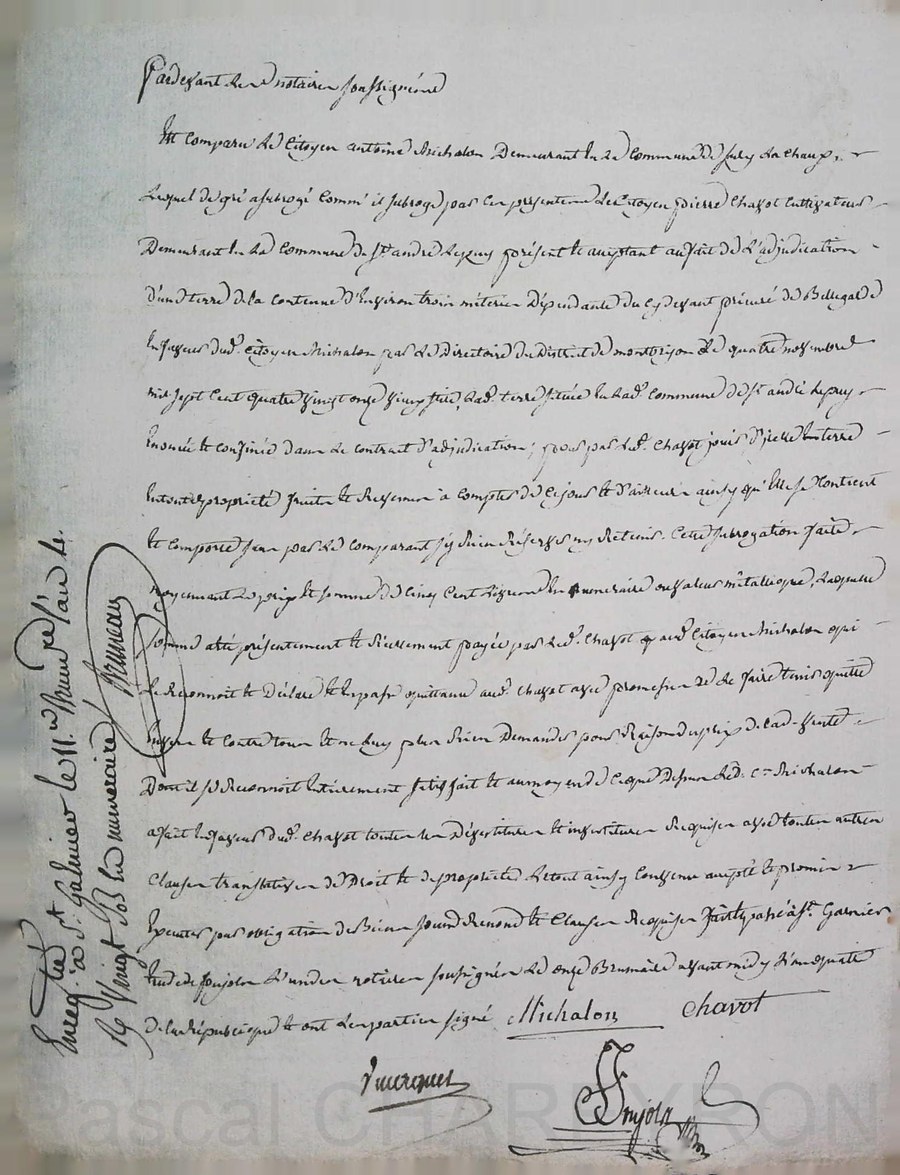 Pardevant les notaires soussignés
Est comparu le Citoyen antoine Michalon Demeurant en la Commune de Sury la chaux
Lequel de gré a subrogé Comm' il subroge par les presentes le Citoyen pierre Chavot Cultivateur
Demeurant en la Commune de St. andré le puy présent et acceptant au fait de l'adjudication
d'une terre de la contenue d'environ trois méterées Dépendante du cy devant prieuré de Bellegarde
en faveur dud. Citoyen Michalon par le Directoire du District de montbrison le quatre novembre
mil sept Cent quatre vingt onze vieux stile, lad. terre située en lad. Commune de St. andré le puy
énoncée et confinée dans le contrat d'adjudication; pour par led. Chavot jouir d'icelle terre
en toute propriété fruits et à compter de ce jour et d'ailleurs ainsy qu'elle se Contient
et comporte sans par le comparant s'y Rien Réserver ny Retenir. Cette subrogation faite
moyennant le prix et somme de Cinq Cent en numéraire ou valeur métallique, Laquelle
somme a été présentement et Réellement payée par led. Chavot aud. Citoyen Michalon qui
le Reconnoit et Déclare et en passe quittance aud. Chavot avec promesse de le faire tenir quitte
envers et Contre tous et ne luy plus Rien Demander pour Raison du prix de lad. vente
Dont il se Reconnoit Entièrement satisfait et au moyen de Ce que Dessus led. c.en Michalon
a fait en faveur dud. Chavot toutes les Dévestitures et investitures Requises avec toutes autres
Clauses translatives de Droit et de propriété Le tout ainsy Convenu accepté et promis
Executer par obligation de Biens Renond. et Clauses Requises fait et passé à St. Galmier
Etude de Soujolz L'un des notaires soussignés Le onze Brumaire avant midy L'an quatre
de la République et ont Les parties signé Michalon Chavot
Soujolz
Enreg. à St. Galmier le 11.e Brum.re l'an 4.
Vingt sols en numéraire Bruneau
Pascal CHAMBEYRON